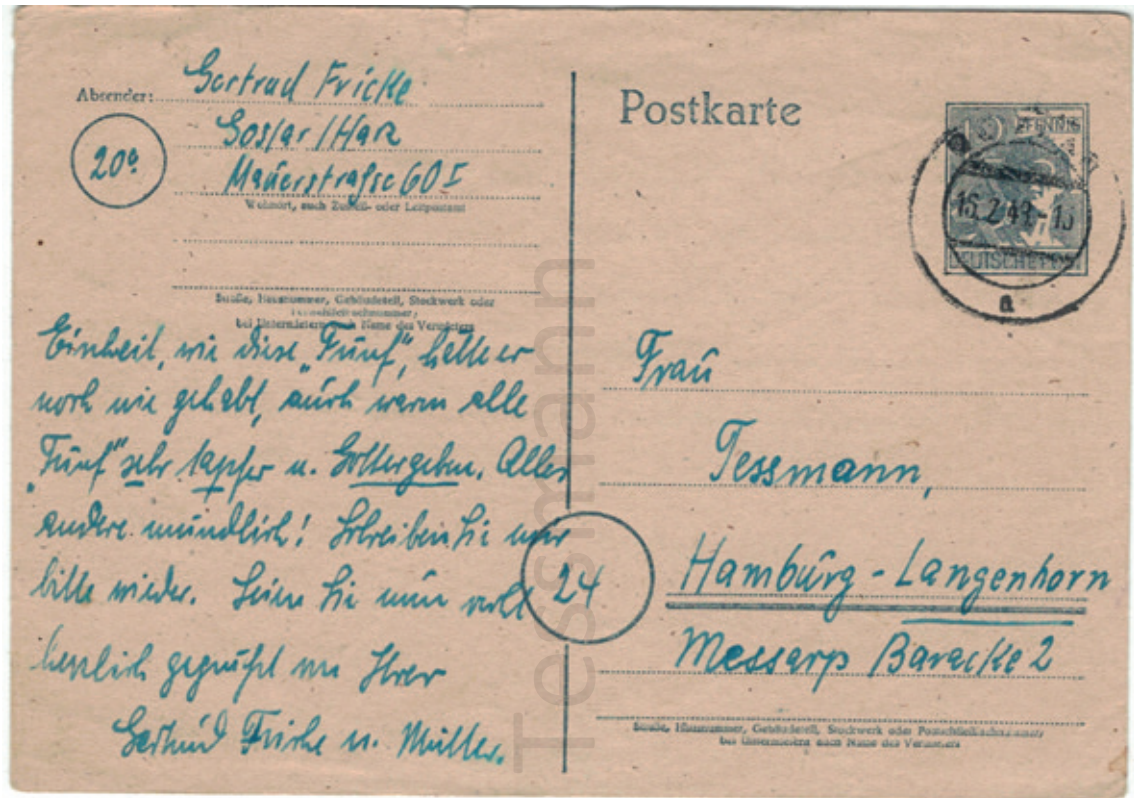 Absender: Gertrud Fricke
Goslar / Harz
20a
Mauerstraße 60 I
Wohnort, auch Zustell- oder Leitpostamt
Straße, Hausnummer, Gebäudeteil, Stockwerk oder
Postschließfachnummer;
bei Untermietern auch Name des Vermieters
Einheit, wie diese „Fünf“, hätte er
noch nie gehabt, auch waren alle
„Fünf“ sehr tapfer u. Gottergeben. Alles
andere mündlich! Schreiben Sie mir
bitte wieder. Seien Sie nun recht
herzlich gegrüßt von Ihrer
Gertrud Fricke u. Mutter.
Postkarte
12 PFENNIG
DEUTSCHE POST
a
Frau
Tessmann,
24
Hamburg-Langenhorn
Messerp Baracke 2
Straße, Hausnummer, Gebäudeteil, Stockwerk oder Postschließfachnummer;
bei Untermietern auch Name des Vermieters
Tessmann